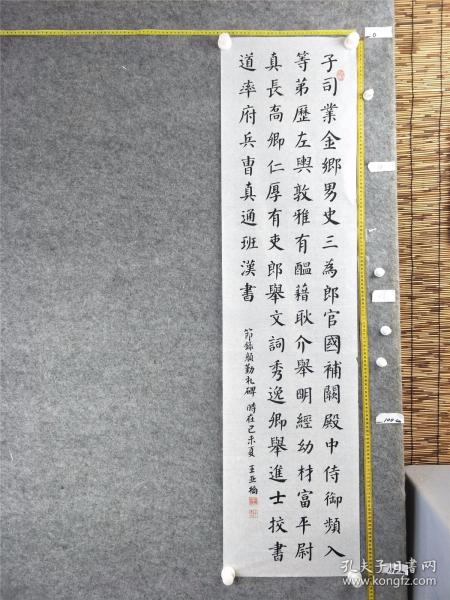 子司業金鄉男史三為郎官國補闕殿中侍御頻入
等第歷左輿敦雅有醞藉耿介舉明經幼材富平尉
真長高卿仁厚有吏郎舉文詞秀逸卿舉進士挍書
道率府兵曹真通班漢書
節錄顏勤礼碑 時在己未夏 王亚楠
孔夫子旧书网
kongfz.com